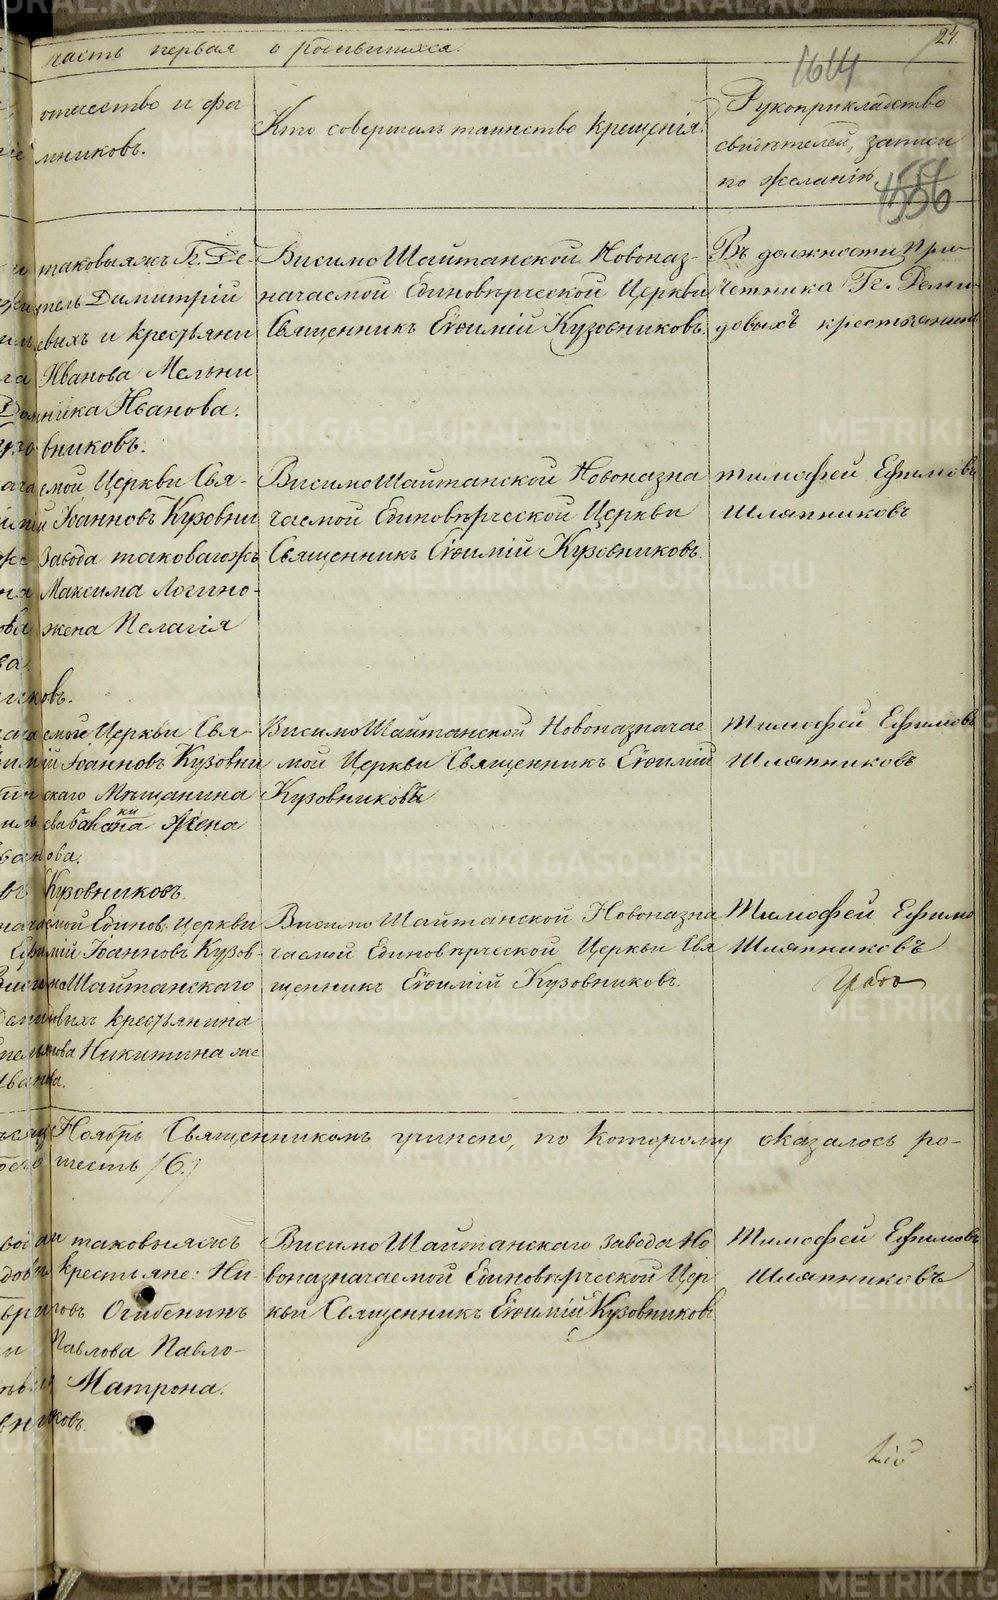 часть первая о родившихся.
24
1614
556
отчество и фа
мниковъ.
Кто совершалъ таинство крещенія.
Рукоприкладство
свидѣтелей, записи
по желанію.
таковыяжъ Гг. Де-
тель Димитрій
евыхъ и крестьяни
Иванова Мельни
мника Иванова.
вниковъ.
Висимо Шайтанской Новоназ-
начаемой Единовѣрческой Церкви
Священникъ Евѳимій Кузовниковъ.
Въ должности При-
четника Гг. Деми-
довыхъ крестьянинъ
емой Церкви Свя-
Іоанновъ Кузовни
Завода таковагожъ
Максима Логино-
жена Пелагія
ковъ.
Висимо Шайтанской Новоназна
чаемой Единовѣрческой Церкви
Священникъ Евѳимій Кузовниковъ.
тимофей Ефимовъ
Шляпниковъ
емой Церкви Свя-
Іоанновъ Кузовни
скаго Мѣщанина
Жена
ова.
Кузовниковъ.
Висимо Шайтанской Новоназначае
мой Церкви Священникъ Евѳимій
Кузовниковъ
тимофей Ефимовъ
Шляпниковъ
емой Единов. Церкви
Іоанновъ Кузов-
Шайтанскаго
крестьянина
Никитина же
Висимо Шайтанской Новоназна
чаемой Единовѣрческой Церкви Свя
щенникъ Евѳимій Кузовниковъ.
Тимофей Ефимо
Шляпниковъ
Ноябрь Священникомъ чинено, по которому оказалось ро-
шесть /6./
таковыяжъ
крестьяне: Ни-
Огибенинъ
Павлова Павло-
Матрона.
ковъ.
Висимо Шайтанскаго завода Но
воназначаемой Единовѣрческой Цер
кви Священникъ Евѳимій Кузовниковъ
Тимофей Ефимовъ
Шляпниковъ
METRIKI.GASO-URAL.RU